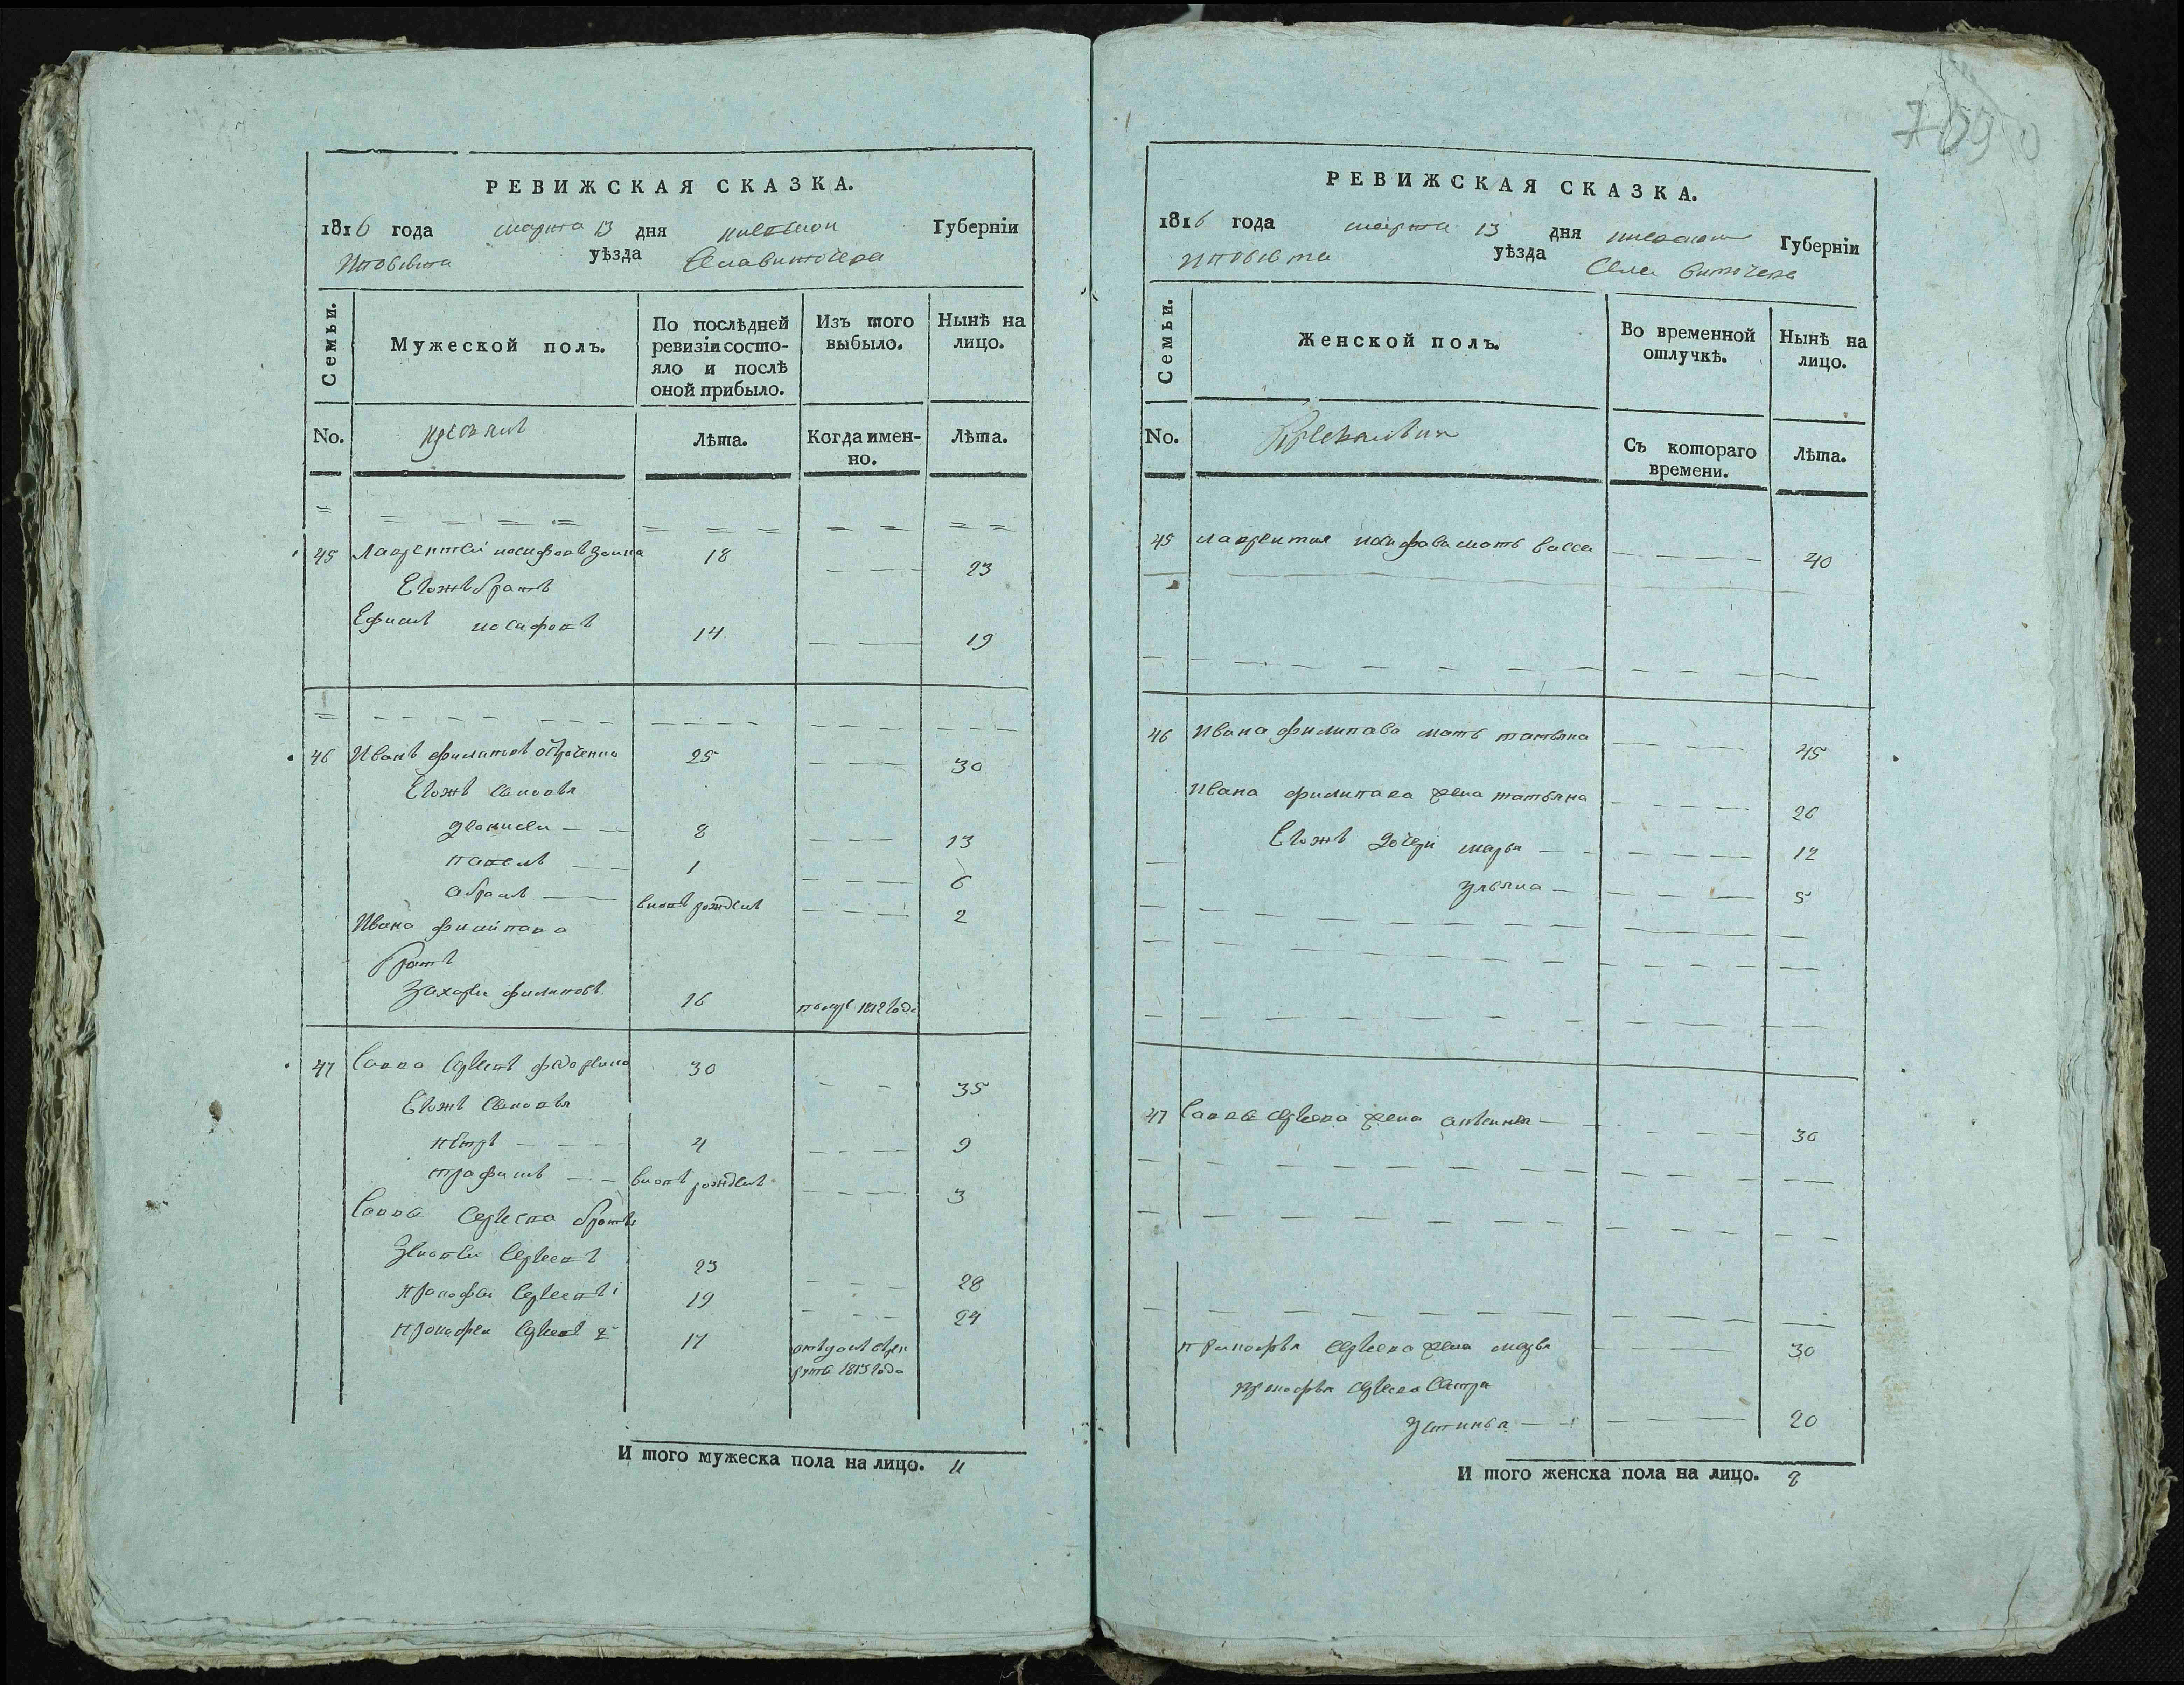 РЕВИЖСКАЯ СКАЗКА.
1816 года марта 13 дня киевской Губернїи
уѣзда Села витачева
Семьи.
Мужеской полъ.
По послѣдней ревизїи состо-
яло и послѣ
оной прибыло.
Изъ того
выбыло.
Нынѣ на
лицо.
No.
Лѣта.
Когда имен-
но.
Лѣта.
45 Лаврентей иосифовъ 18 23
Егожъ братъ
Ефимъ иосифовъ 14 19
46 Иванъ филиповъ 25 30
Егожъ Сыновья
8 13
павелъ 1 6
абрамъ вновь рожденъ 2
Ивана филипова
братъ
Захарей филиповъ 16 помре 1812 года
47 Савва Сергеевъ 30 35
Егожъ Сыновья
петръ 4 9
трафимъ вновь рожденъ 3
Саввы Сергеева братья
Сергеевъ 23 28
прокофей Сергеевъ 1 19 24
прокофей Сергеевъ 2 17 отданъ врек
руты 1813 года
И того мужеска пола на лицо. 11
РЕВИЖСКАЯ СКАЗКА.
1816 года марта 13 дня киевской Губернїи
уѣзда Села витачева
Семьи.
Женской полъ.
Во временной
отлучкѣ.
Нынѣ на
лицо.
No.
Съ котораго
времени.
Лѣта.
45 лаврентия иосифова мать васса 40
46 Ивана филипава мать татьяна 45
Ивана филипава жена татьяна 26
Егожъ дочери марья 12
ульяна 5
47 Саввы сергеева жена 30
прокофья сергеева жена марья 30
прокофья сергеева Сестра
устинья 20
И того женска пола на лицо. 8